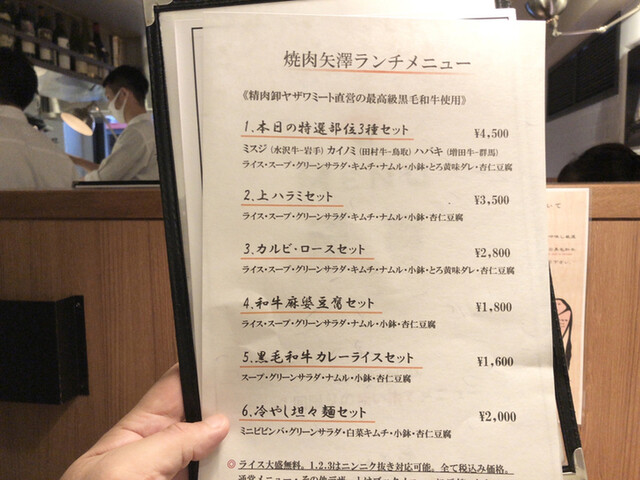 焼肉矢澤ランチメニュー
《精肉卸ヤザワミート直営の最高級黒毛和牛使用》
1.本日の特選部位3種セット ¥4,500
ミスジ(水沢牛-岩手) カイノミ(田村牛-鳥取) ハバキ(増田牛-群馬)
ライス・スープ・グリーンサラダ・キムチ・ナムル・小鉢・とろ黄味ダレ・杏仁豆腐
2.上ハラミセット ¥3,500
ライス・スープ・グリーンサラダ・キムチ・ナムル・小鉢・杏仁豆腐
3.カルビ・ロースセット ¥2,800
ライス・スープ・グリーンサラダ・キムチ・ナムル・小鉢・とろ黄味ダレ・杏仁豆腐
4.和牛麻婆豆腐セット ¥1,800
ライス・スープ・グリーンサラダ・ナムル・小鉢・杏仁豆腐
5.黒毛和牛カレーライスセット ¥1,600
スープ・グリーンサラダ・ナムル・小鉢・杏仁豆腐
6.冷やし坦々麺セット ¥2,000
ミニビビンバ・グリーンサラダ・白菜キムチ・小鉢・杏仁豆腐
◎ライス大盛無料。1.2.3はニンニク抜き対応可能。全て税込み価格。